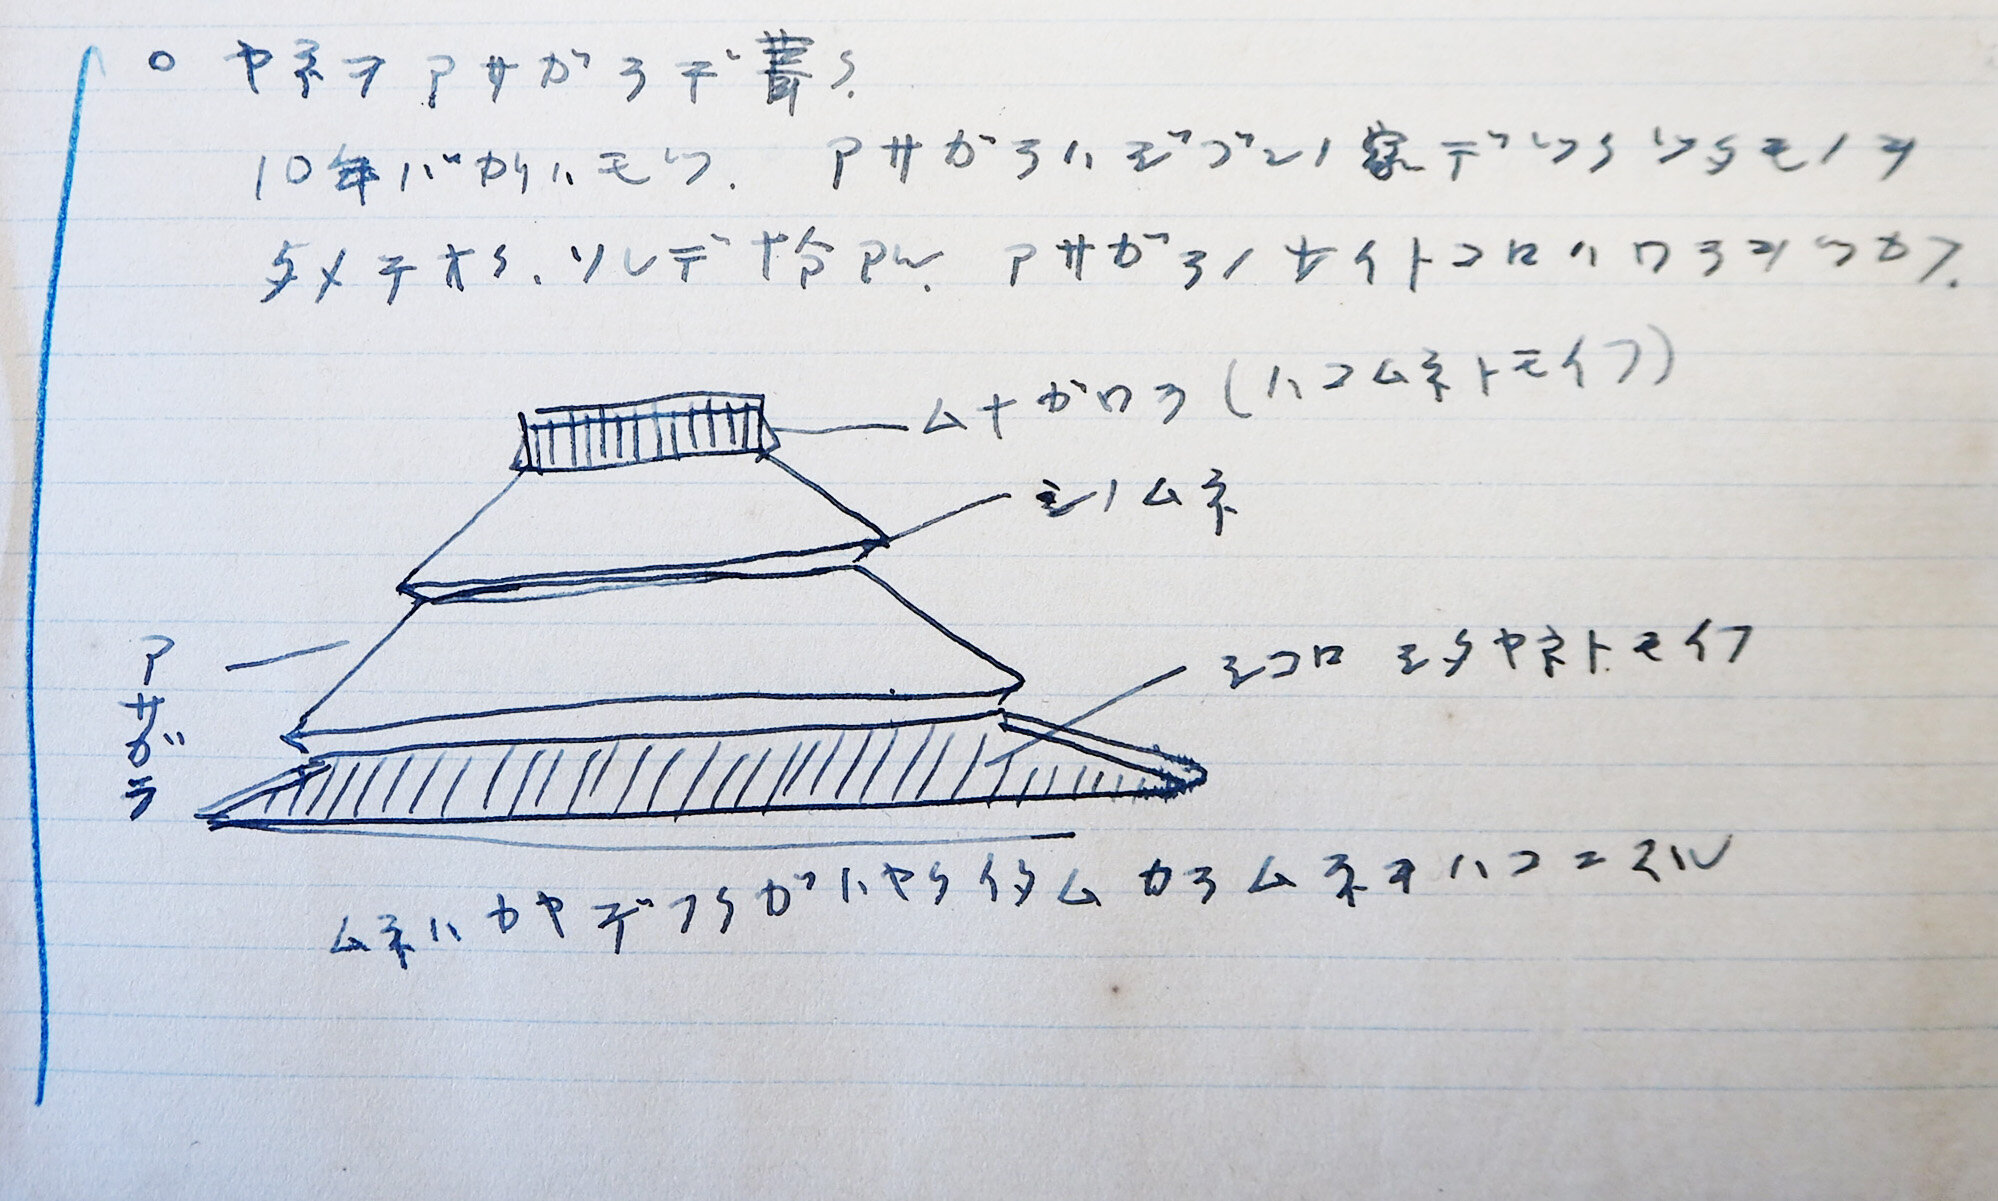 ○ ヤネヲアサガラデ葺ク.
10年バカリハモツ. アサガラハジブンノ家デツクツタモノヲ
タメテオク. ソレデ十分アル. アサガラノナイトコロハワラヲツカフ.
ムナガワラ(ハコムネトモイフ)
シノムネ
シコロ シタヤネトモイフ
アサガラ
ムネハカヤデフクガハヤクイタムカラムネヲハコニスル